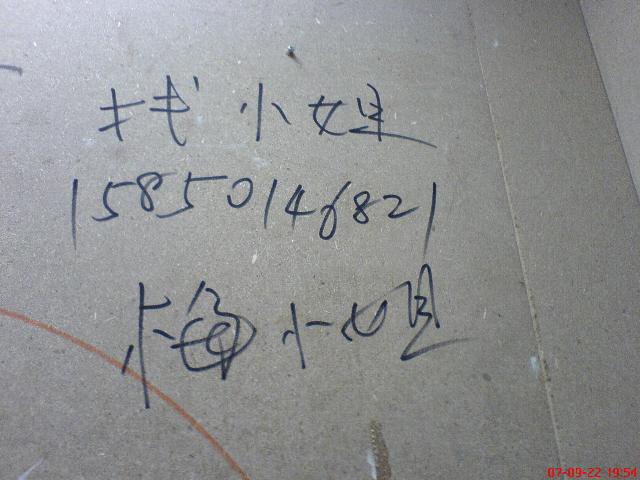 找小姐
15850146821
梅小姐
07-09-22 19:54